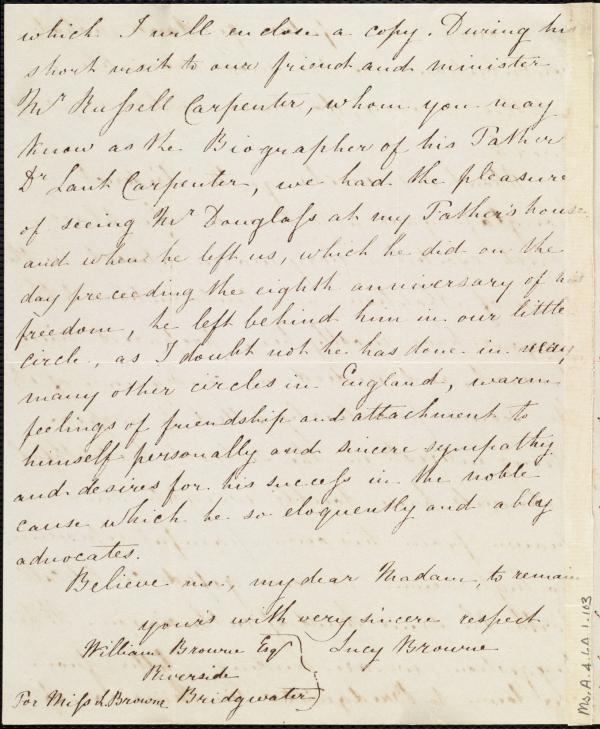 which I will enclose a copy. During his
short visit to our friend and minister
Mr Russell Carpenter, whom you may
know as the Biographer of his Father
Dr Lant Carpenter, we had the pleasure
of seeing Mr Douglass at my Father's house
and when he left us, which he did on the
day preceeding the eighth anniversary of his
freedom, he left behind him in our little
circle, as I doubt not he has done in
many other circles in England, warm
feelings of friendship and attachment to
himself personally and sincere sympathy
and desires for his success in the noble
cause which he so eloquently and ably
advocates.
Believe me, my dear Madam, to remain
yours with very sincere respect
Lucy Browne
William Browne Esqr
Riverside
Bridgwater
For Miss L. Browne
Ms. A. 4.6A.1.103